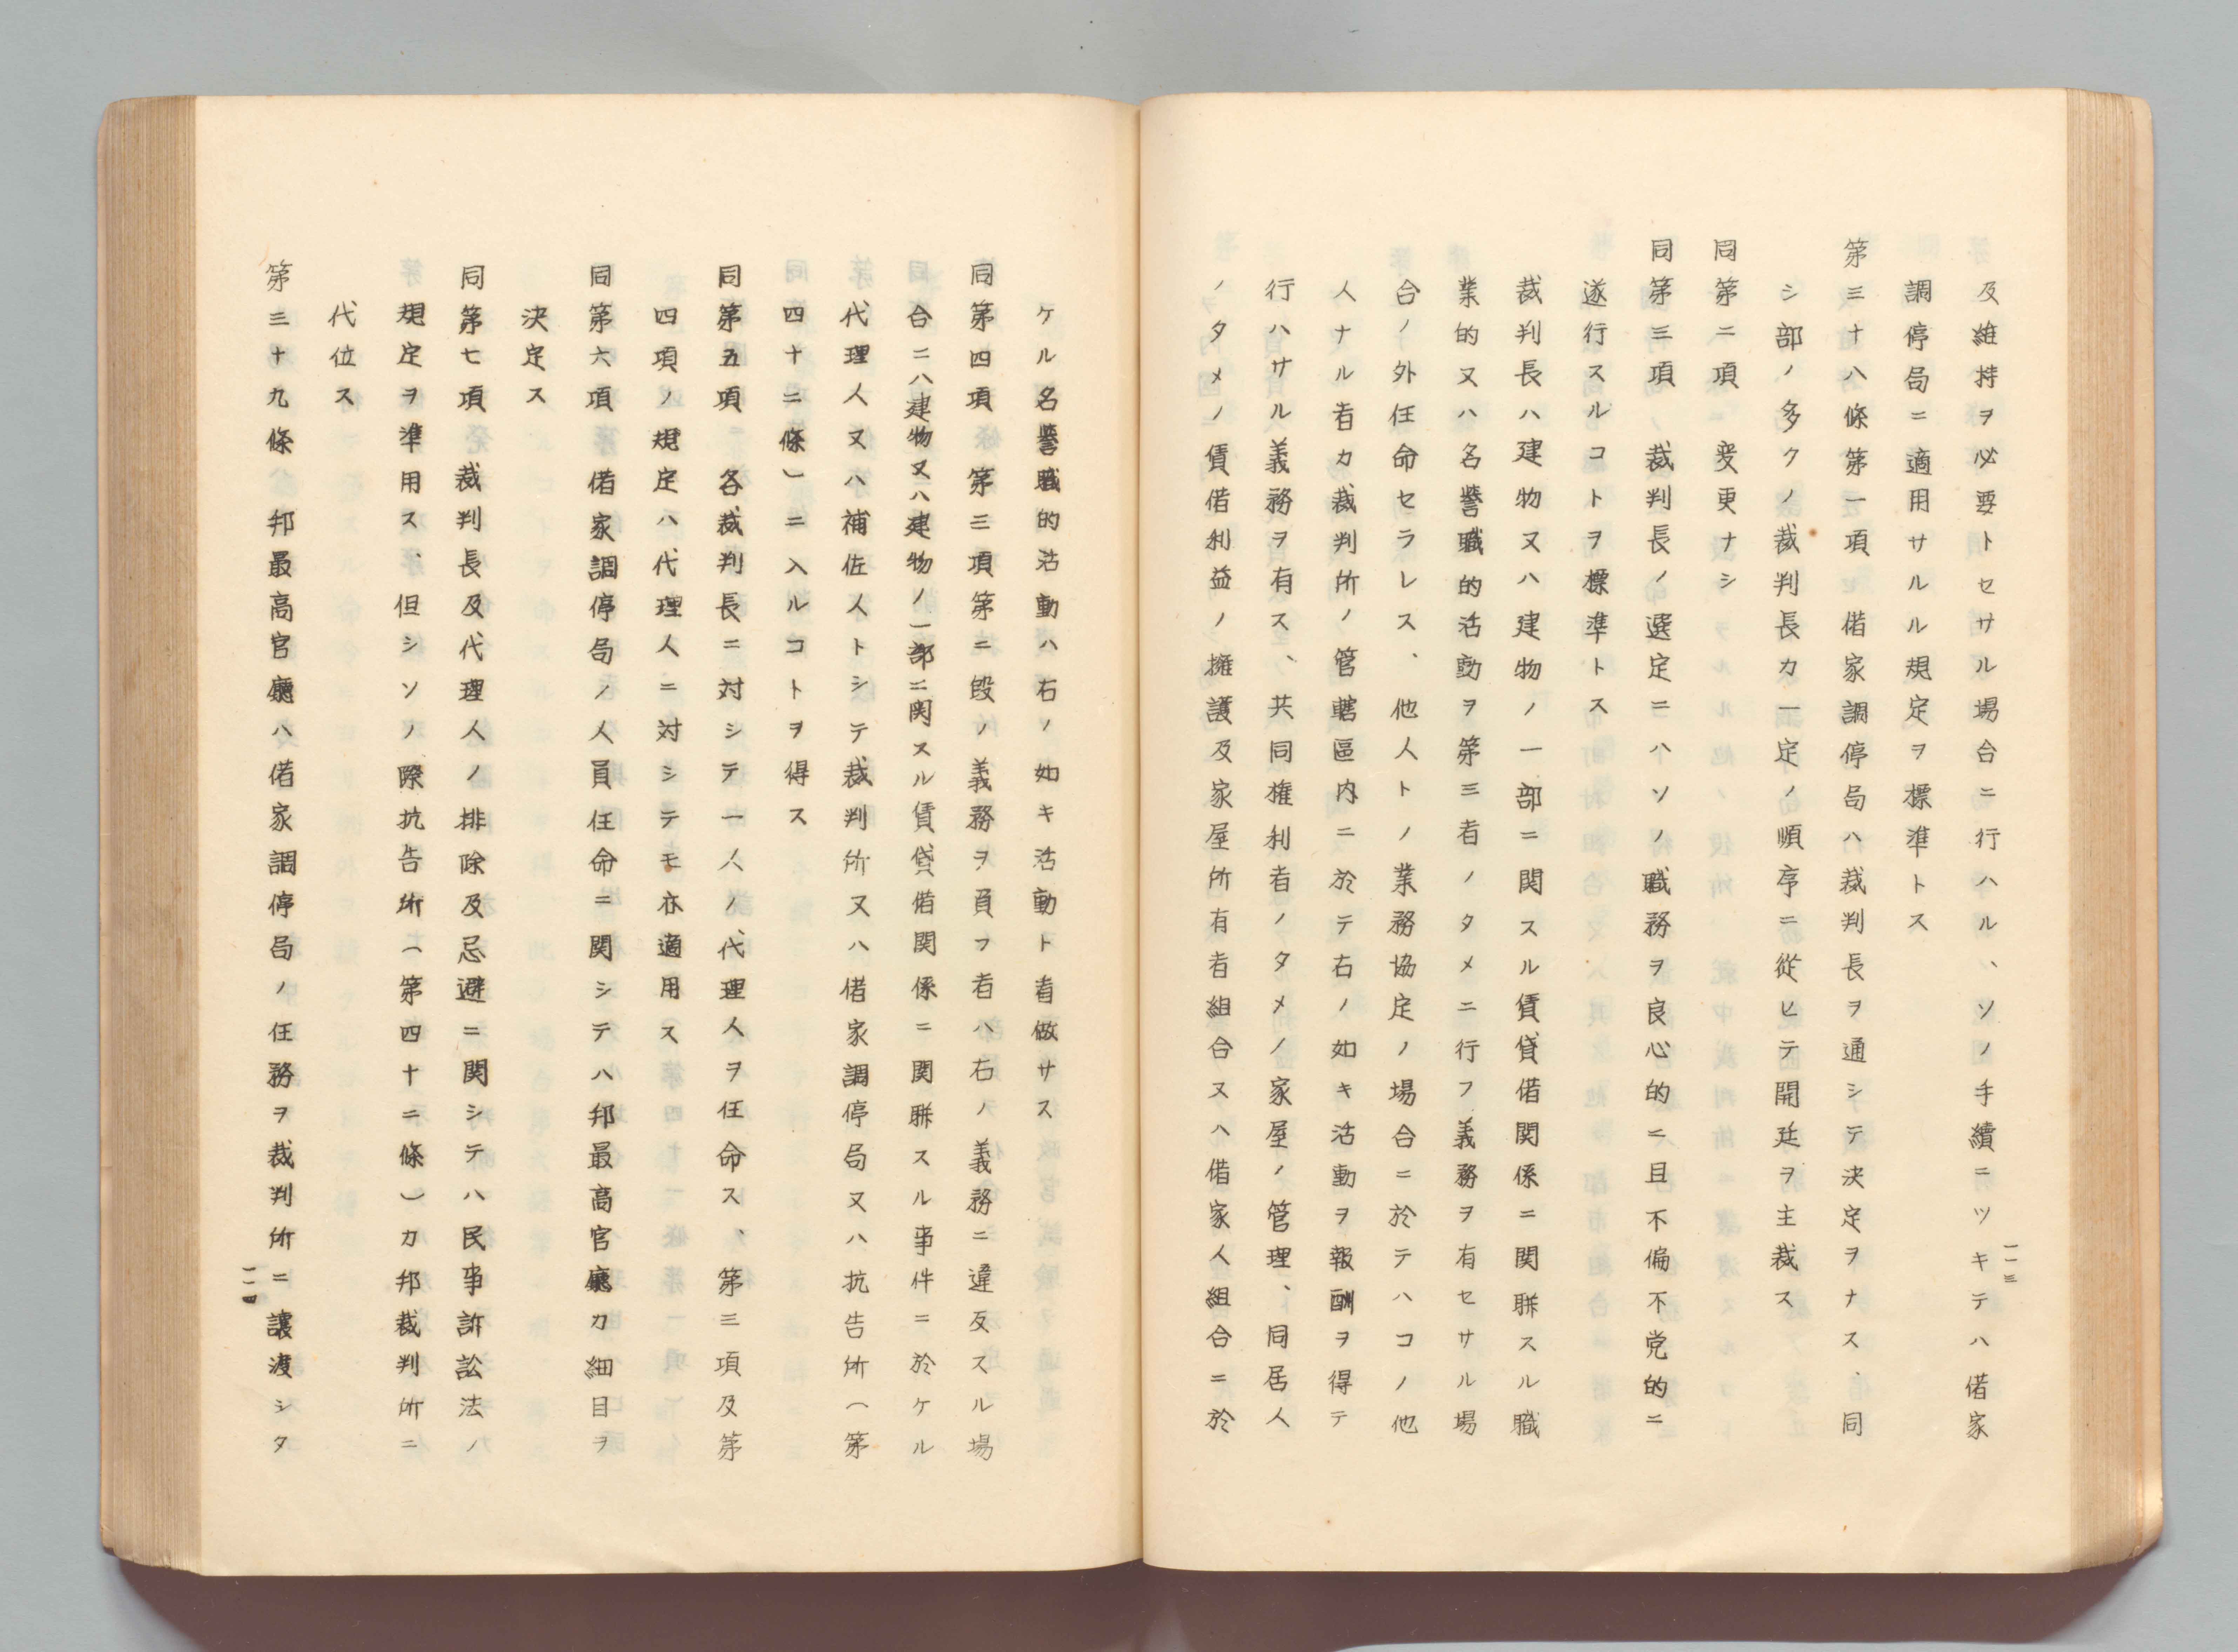 及維持ヲ必要トセサル場合ニ行ハル、ソノ手續ニツキテハ偌家
調停局ニ適用サルル規定ヲ標準トス
第三十八條第一項 偌家調停局ハ裁判長ヲ通シテ決定ヲナス、同
シ部ノ多クノ裁判長カ一定ノ順序ニ從ヒテ開廷ヲ主裁ス
同第二項 変更ナシ
同第三項 裁判長ノ選定ニハソノ職務ヲ良心的ニ且不偏不党的ニ
遂行スルコトヲ標準トス
裁判長ハ建物又ハ建物ノ一部ニ関スル賃貸偌関係ニ関聨スル職
業的又ハ名譽職的活動ヲ第三者ノタメニ行フ義務ヲ有セサル場
合ノ外任命セラレス、他人トノ業務協定ノ場合ニ於テハコノ他
人ナル者カ裁判所ノ管轄區内ニ於テ右ノ如キ活動ヲ報酬ヲ得テ
行ハサル義務ヲ有ス、共同権利者ノタメノ家屋ノ管理、同居人
ノタメノ賃偌利益ノ擁護及家屋所有者組合又ハ偌家人組合ニ於
一一三
ケル名譽職的活動ハ右ノ如キ活動ト看做サス
同第四項 第三項第二段ノ義務ヲ負フ者ハ右ノ義務ニ違反スル場
合ニハ建物又ハ建物ノ一部ニ関スル賃貸偌関係ニ関聨スル事件ニ於ケル
代理人又ハ補佐人トシテ裁判所又ハ偌家調停局又ハ抗告所（第
四十二條）ニ入ルコトヲ得ス
同第五項 各裁判長ニ対シテ一人ノ代理人ヲ任命ス、第三項及第
四項ノ規定ハ代理人ニ対シテモ亦適用ス
同第六項 偌家調停局ノ人員任命ニ関シテハ邦最高官廳カ細目ヲ
決定ス
同第七項 裁判長及代理人ノ排除及忌避ニ関シテハ民事訴訟法ノ
規定ヲ準用ス、但シソノ際抗告所（第四十二條）カ邦裁判所ニ
代位ス
第三十九條 邦最高官廳ハ偌家調停局ノ任務ヲ裁判所ニ讓渡シタ
一一四